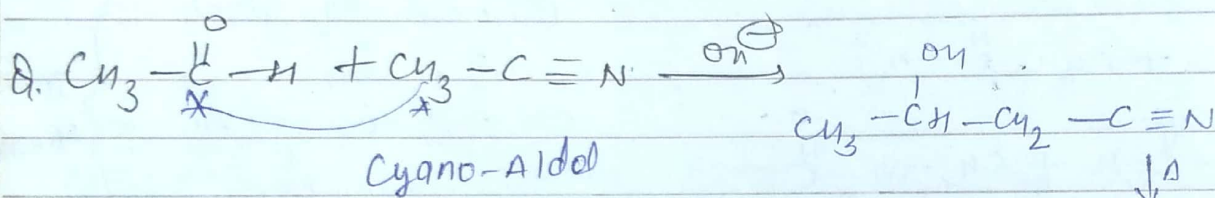 O
Q. CH₃ – C – H + CH₃ – C ≡ N OH⊖ → OH
CH₃ – CH – CH₂ – C ≡ N
Cyano-Aldol ↓ Δ